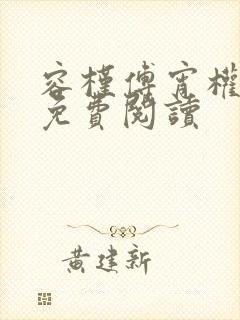 容槿傅宵權
免費閱讀
黃建新